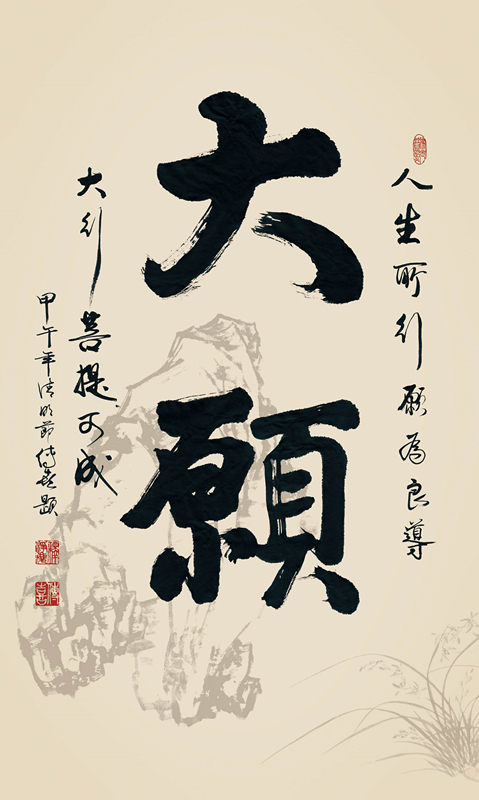 大願
人生所行願為良導
大行菩提可成
甲午年清明節傳喜題